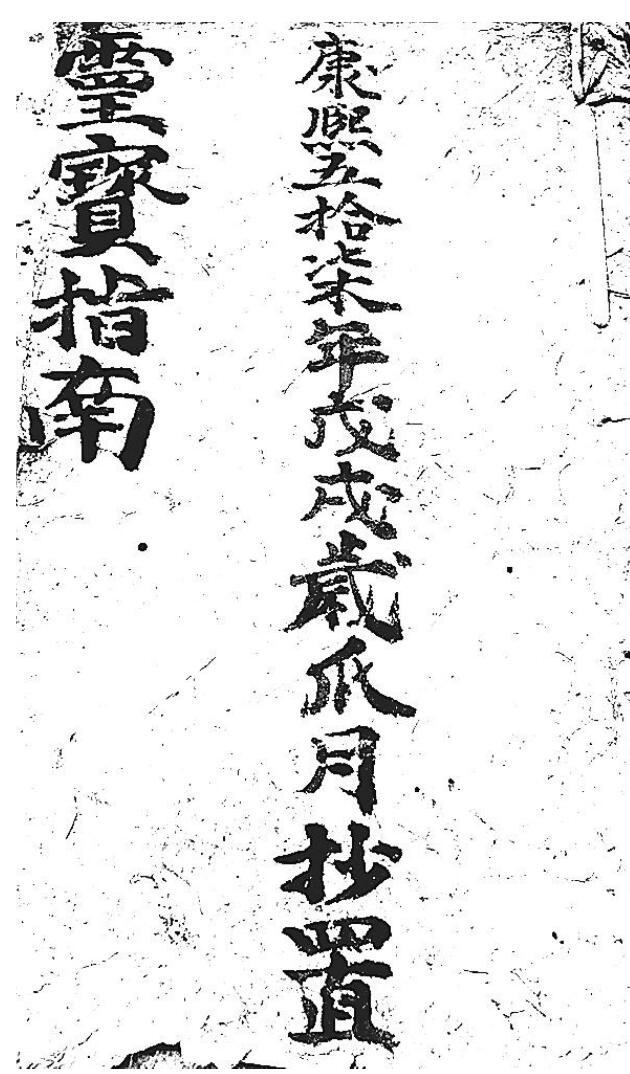 康熙五拾柒年戊戌歲瓜月抄置
靈寳指南